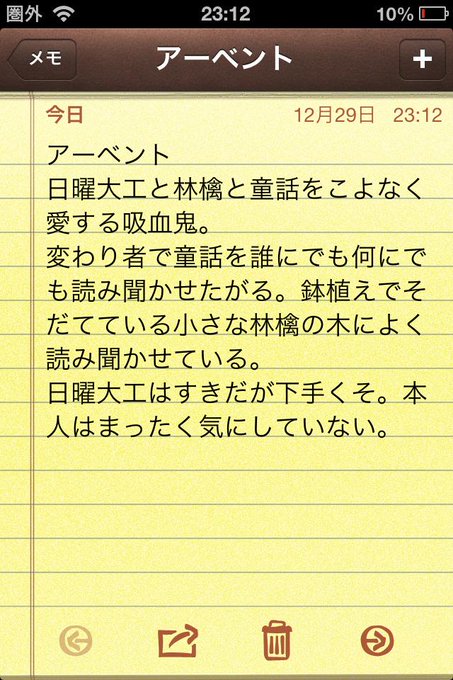 圏外 23:12 10%
メモ アーベント +
今日 12月29日 23:12
アーベント
日曜大工と林檎と童話をこよなく
愛する吸血鬼。
変わり者で童話を誰にでも何にで
も読み聞かせたがる。鉢植えでそ
だてている小さな林檎の木によく
読み聞かせている。
日曜大工はすきだが下手くそ。本
人はまったく気にしていない。